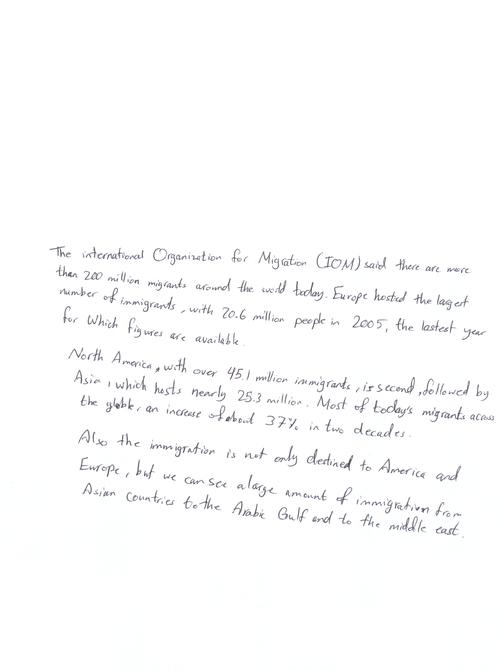 The international Organization for Migration (IOM) said there are more
than 200 million migrants around the world today. Europe hosted the largest
number of immigrants, with 70.6 million people in 2005, the lastest year
for Which figures are available.
North America, with over 45.1 million immigrants, is second, followed by
Asia, which hosts nearly 25.3 million. Most of today's migrants across
the globle, an increase of about 37% in two decades.
Also the immigration is not only destined to America and
Europe, but we can see a large amount of immigration from
Asian countries to the Arabic Gulf and to the middle east.